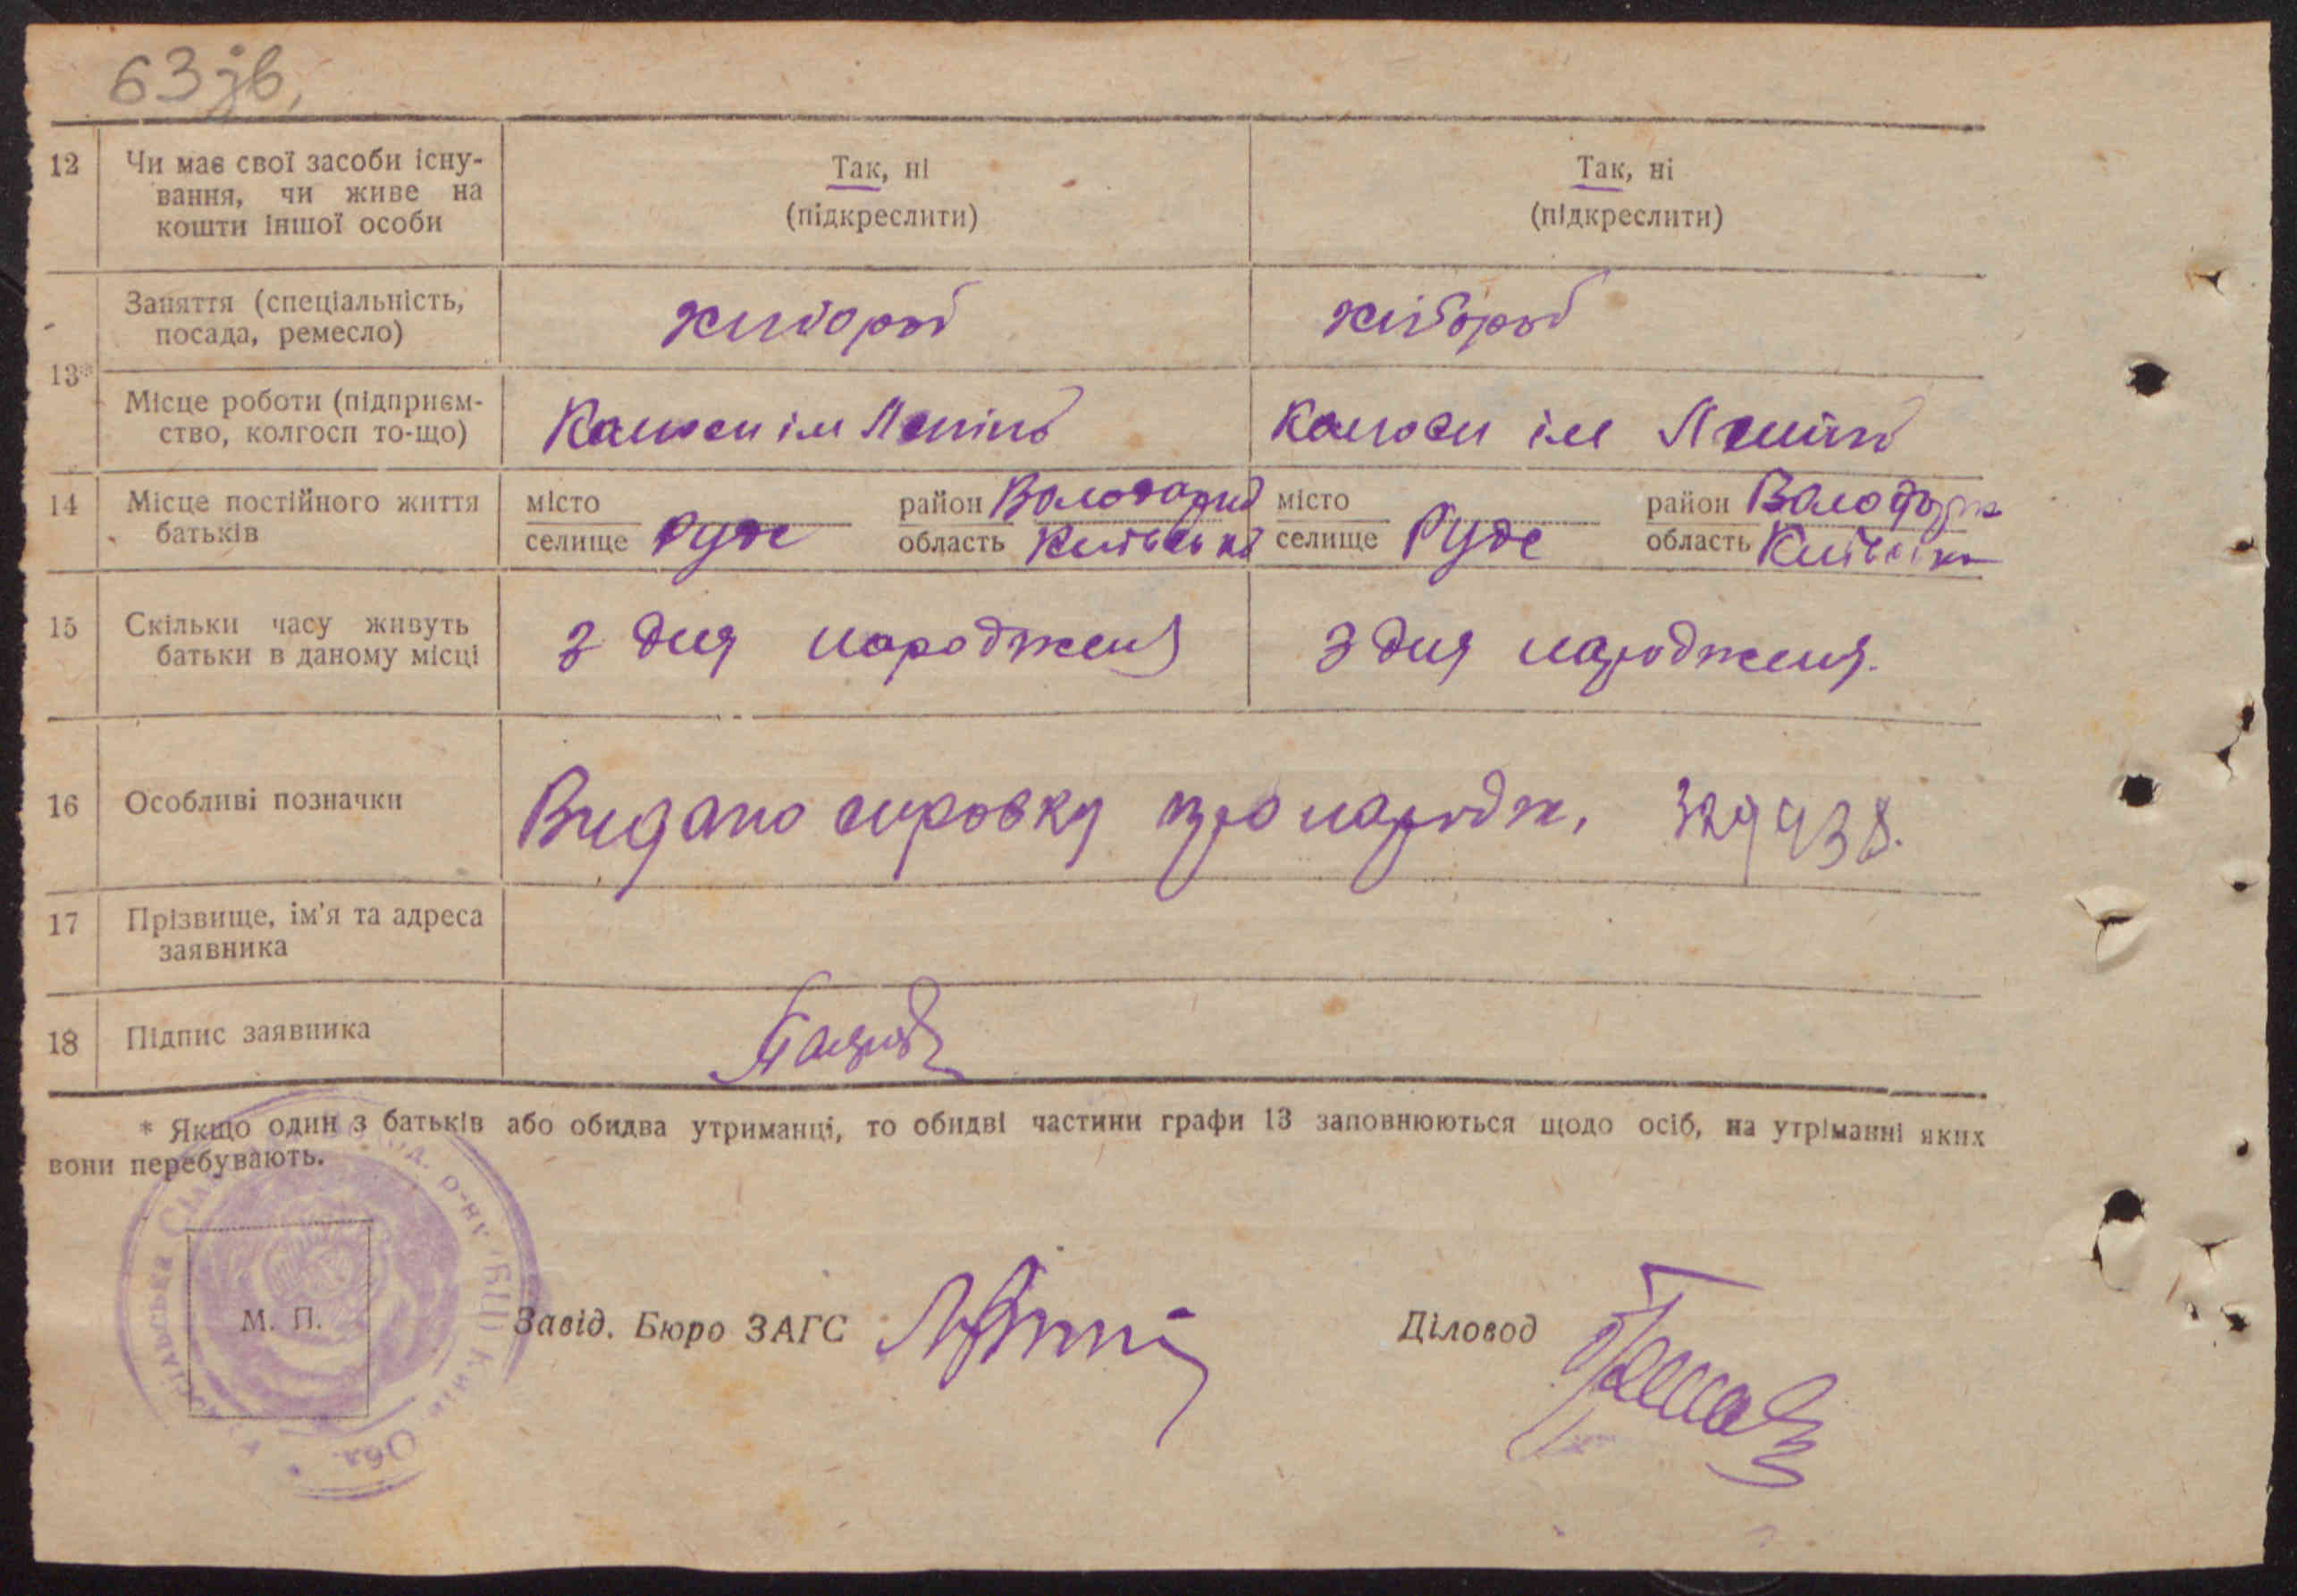 63 зв,
12 Чи має свої засоби існу-
вання, чи живе на
кошти іншої особи
Так, ні
(підкреслити)
Так, ні
(підкреслити)
13*
Заняття (спеціальність,
посада, ремесло)
хлібороб
хлібороб
Місце роботи (підприєм-
ство, колгосп то-що)
ім Леніна
ім Леніна
14 Місце постійного життя
батьків
місто
селище Руде
район
область Київська
місто
селище Руде
район
область
15 Скільки часу живуть
батьки в даному місці
з дня народженя
з дня народженя.
16 Особливі позначки
Видано справку про народж.
17 Прізвище, ім'я та адреса
заявника
18 Підпис заявника
* Якщо один з батьків або обидва утриманці, то обидві частини графи 13 заповнюються щодо осіб, на утріманні яких
вони перебувають.
М. П.
Завід. Бюро ЗАГС
Діловод